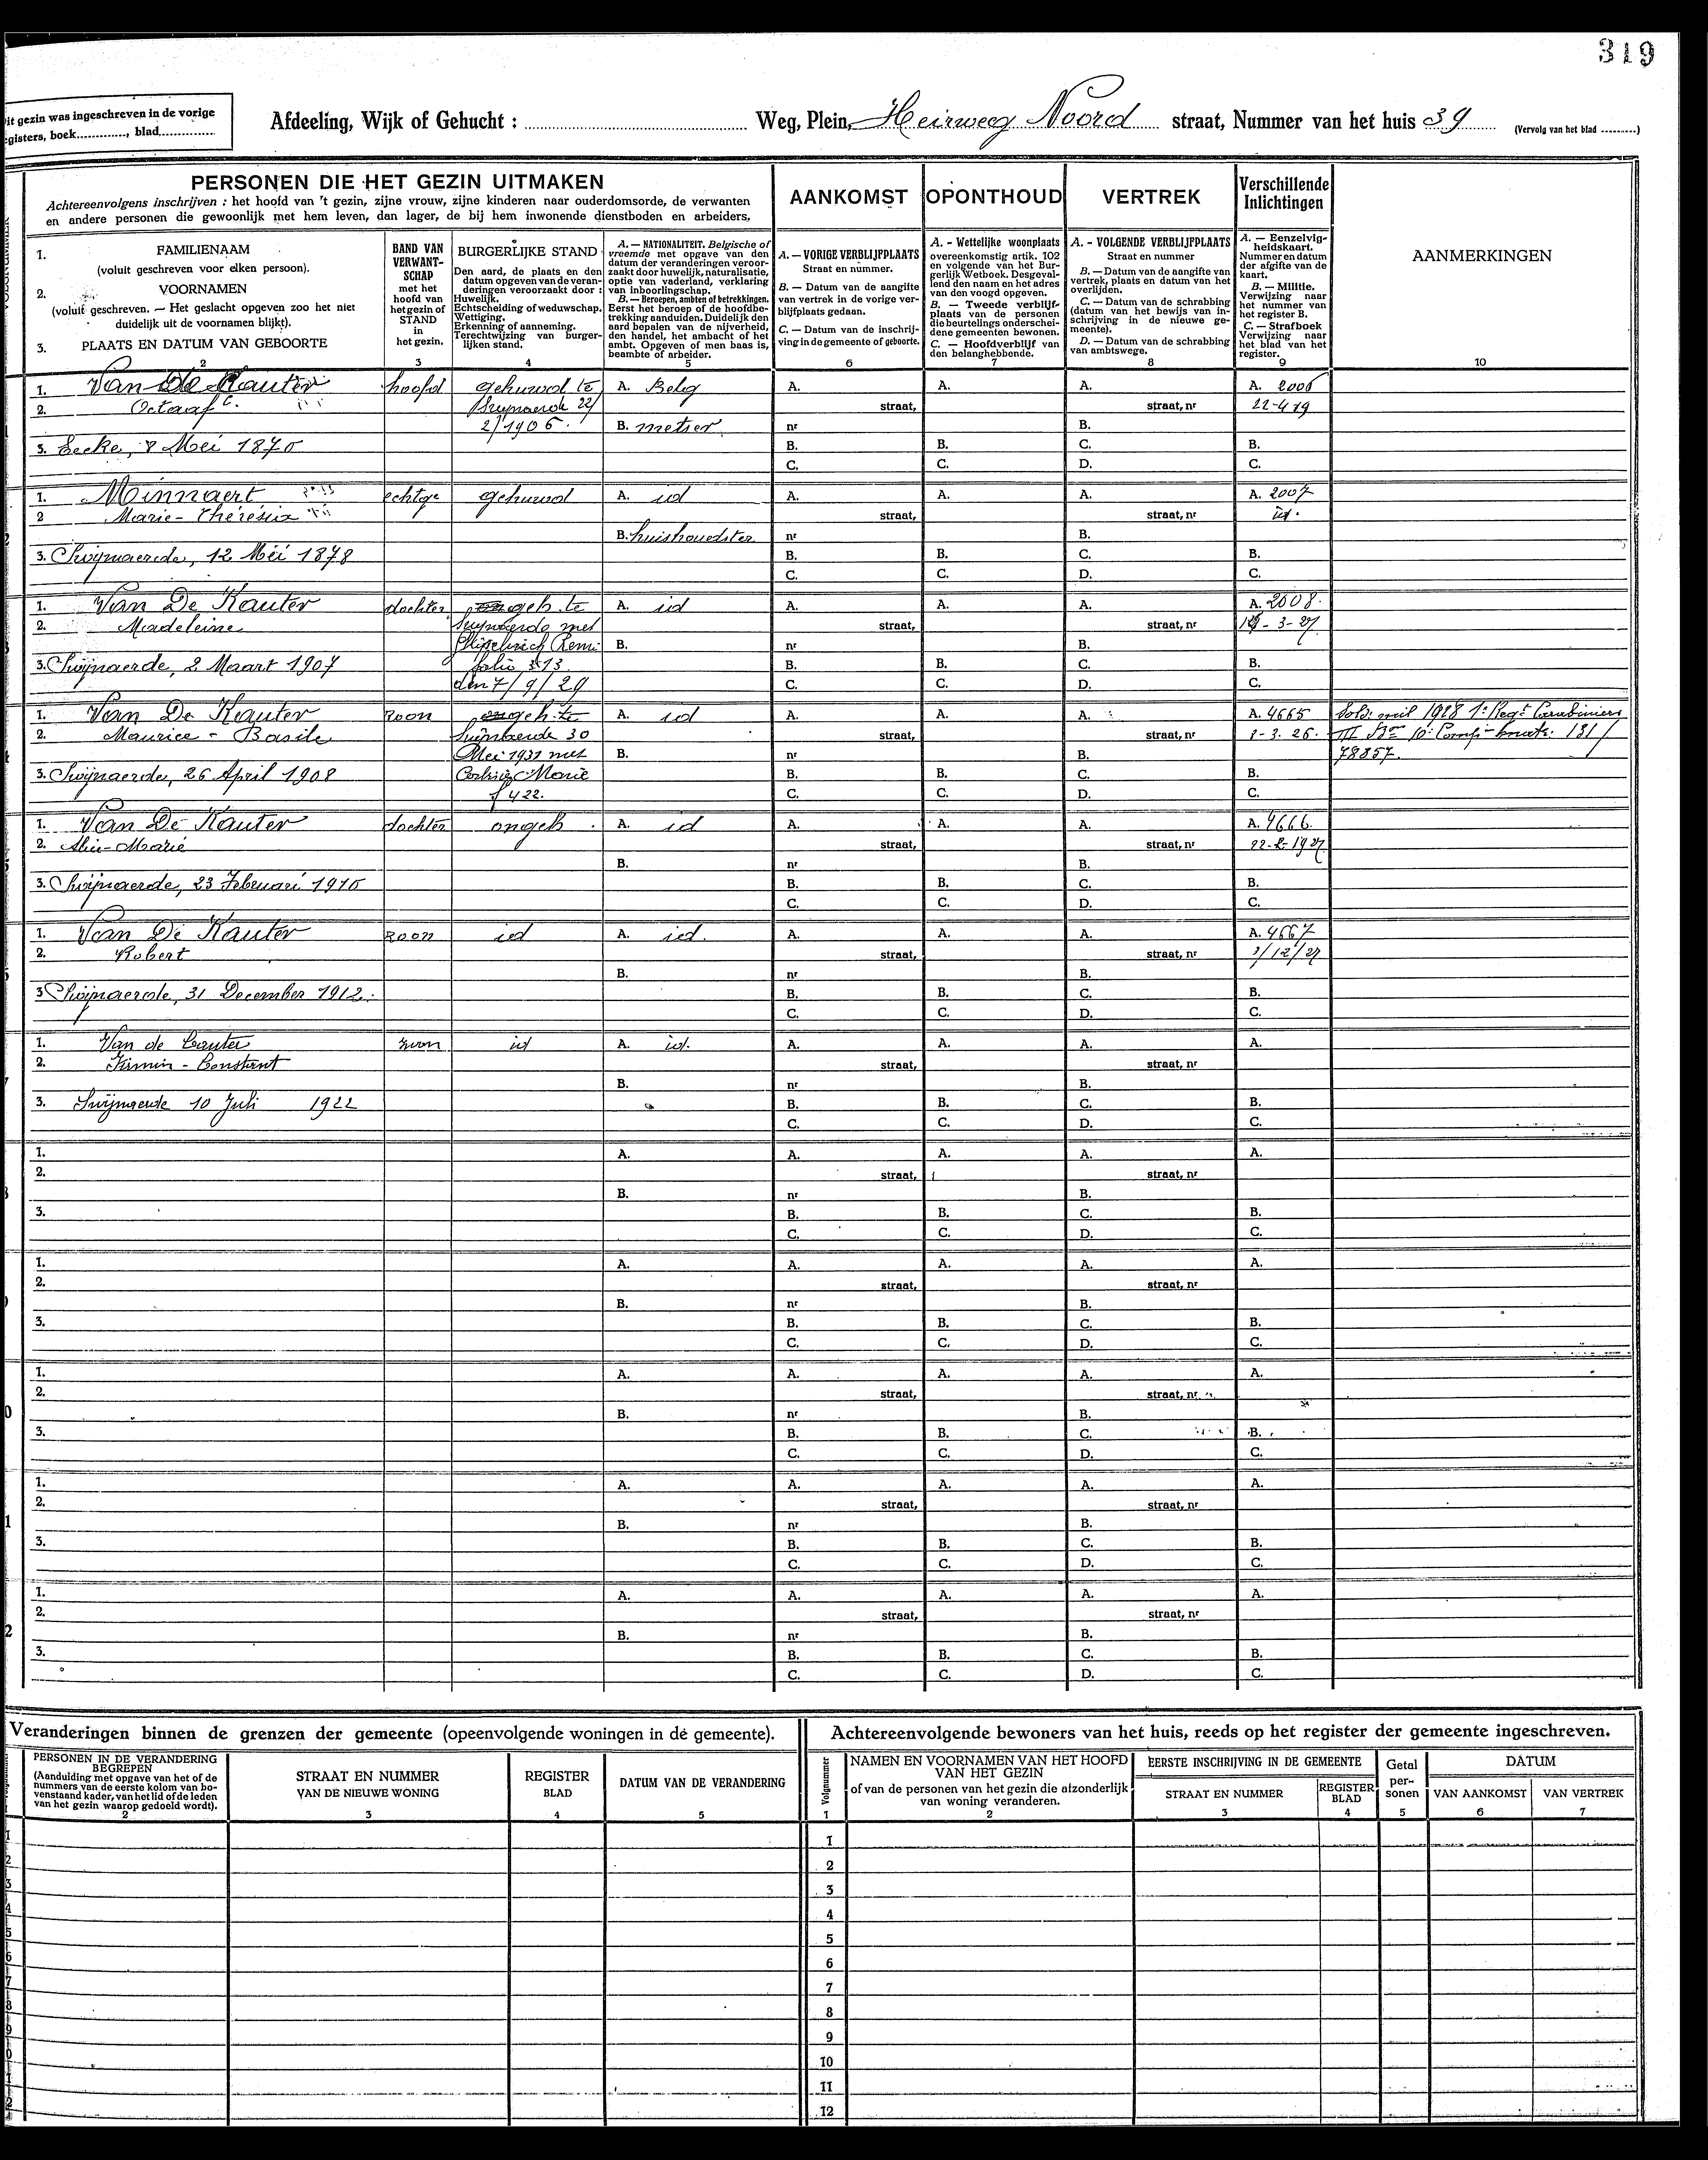 319
Dit gezin was ingeschreven in de vorige
registers, boek............, blad...............
Afdeeling, Wijk of Gehucht : ........................ Weg, Plein, Heirweg Noord straat, Nummer van het huis 39 (Vervolg van het blad ..........)
PERSONEN DIE HET GEZIN UITMAKEN
Achtereenvolgens inschrijven : het hoofd van 't gezin, zijne vrouw, zijne kinderen naar ouderdomsorde, de verwanten
en andere personen die gewoonlijk met hem leven, dan lager, de bij hem inwonende dienstboden en arbeiders.
AANKOMST
OPONTHOUD
VERTREK
Verschillende
Inlichtingen
1. FAMILIENAAM
(voluit geschreven voor elken persoon).
2. VOORNAMEN
(voluit geschreven. — Het geslacht opgeven zoo het niet
duidelijk uit de voornamen blijkt).
3. PLAATS EN DATUM VAN GEBOORTE
2
BAND VAN
VERWANT-
SCHAP
met het
hoofd van
het gezin of
STAND
in
het gezin.
3
BURGERLIJKE STAND
Den aard, de plaats en den
datum opgeven van de veran-
deringen veroorzaakt door :
Huwelijk.
Echtscheiding of weduwschap.
Wettiging.
Erkenning of aanneming.
Terechtwijzing van burger-
lijken stand.
4
A. — NATIONALITEIT. Belgische of
vreemde met opgave van den
datum der veranderingen veroor-
zaakt door huwelijk, naturalisatie,
optie van vaderland, verklaring
van inboorlingschap.
B. — Beroepen, ambten of betrekkingen.
Eerst het beroep of de hoofdbe-
trekking aanduiden. Duidelijk den
aard bepalen van de nijverheid,
den handel, het ambacht of het
ambt. Opgeven of men baas is,
beambte of arbeider.
5
A. — VORIGE VERBLIJFPLAATS
Straat en nummer.
B. — Datum van de aangifte
van vertrek in de vorige ver-
blijfplaats gedaan.
C. — Datum van de inschrij-
ving in de gemeente of geboorte.
6
A. - Wettelijke woonplaats
overeenkomstig artik. 102
en volgende van het Bur-
gerlijk Wetboek. Desgeval-
lend den naam en het adres
van den voogd opgeven.
B. — Tweede verblijf-
plaats van de personen
die beurtelings onderschei-
dene gemeenten bewonen.
C. — Hoofdverblijf van
den belanghebbende.
7
A. - VOLGENDE VERBLIJFPLAATS
Straat en nummer
B. — Datum van de aangifte van
vertrek, plaats en datum van het
overlijden.
C. — Datum van de schrabbing
(datum van het bewijs van in-
schrijving in de nieuwe ge-
meente).
D. — Datum van de schrabbing
van ambtswege.
8
A. — Eenzelvig-
heidskaart.
Nummer en datum
der afgifte van de
kaart.
B. — Militie.
Verwijzing naar
het nummer van
het register B.
C. — Strafboek
Verwijzing naar
het blad van het
register.
9
AANMERKINGEN
10
1. Van De Kauter hoofd gehuwd te A. Belg A. A. A. A. 2006
2. Octaaf C. 22/ straat, straat, nr 22-4 19
2/1906. B. metser nr B.
3. Eecke, 8 Mei 1870 B. B. C. B.
C. C. D. C.
1. Minnaert echtge gehuwd A. id A. A. A. A. 2007
2 Marie- straat, straat, nr id.
B. huishoudster nr B.
3. Swijnaerde, 12 Mei 1878 B. B. C. B.
C. C. D. C.
1. Van De Kauter dochter geh. te A. id A. A. A. A. 2008.
2. Madeleine met straat, straat, nr - 3- 27
B. nr B.
3. Swijnaerde, 2 Maart 1907 folio 313 B. B. C. B.
den 7/9/29 C. C. D. C.
1. Van De Kauter zoon geh. te A. id A. A. A. A. 4665 1928 Carabiniers
2. Maurice - Basile 30 straat, straat, nr 1-3. 26. III 131/
Mei 1931 met B. nr B. 78357.
3. Swijnaerde, 26 April 1908 Marie B. B. C. B.
f 422. C. C. D. C.
1. Van De Kauter dochter ongeh. A. id A. A. A. A. 4666.
2. Marie straat, straat, nr
B. nr B.
3. Swijnaerde, 23 Februari 1910 B. B. C. B.
C. C. D. C.
1. Van De Kauter zoon id A. id. A. A. A. A. 4667
2. Robert straat, straat, nr 1/12/27
B. nr B.
3 Swijnaerde, 31 December 1912. B. B. C. B.
C. C. D. C.
1. Van de Cauter zoon id A. id. A. A. A. A.
2. Firmin - Constant straat, straat, nr
B. nr B.
3. Swijnaerde 10 Juli 1922 B. B. C. B.
C. C. D. C.
1. A. A. A. A. A.
2. straat, straat, nr
B. nr B.
3. B. B. C. B.
C. C. D. C.
1. A. A. A. A. A.
2. straat, straat, nr
B. nr B.
3. B. B. C. B.
C. C. D. C.
1. A. A. A. A. A.
2. straat, straat, nr
B. nr B.
3. B. B. C. B.
C. C. D. C.
1. A. A. A. A. A.
2. straat, straat, nr
B. nr B.
3. B. B. C. B.
C. C. D. C.
1. A. A. A. A. A.
2. straat, straat, nr
B. nr B.
3. B. B. C. B.
C. C. D. C.
Veranderingen binnen de grenzen der gemeente (opeenvolgende woningen in de gemeente).
PERSONEN IN DE VERANDERING
BEGREPEN
(Aanduiding met opgave van het of de
nummers van de eerste kolom van bo-
venstaand kader, van het lid of de leden
van het gezin waarop gedoeld wordt).
2
STRAAT EN NUMMER
VAN DE NIEUWE WONING
3
REGISTER
BLAD
4
DATUM VAN DE VERANDERING
5
Achtereenvolgende bewoners van het huis, reeds op het register der gemeente ingeschreven.
Volgnummer
1
NAMEN EN VOORNAMEN VAN HET HOOFD
VAN HET GEZIN
of van de personen van het gezin die afzonderlijk
van woning veranderen.
2
EERSTE INSCHRIJVING IN DE GEMEENTE
STRAAT EN NUMMER
3
REGISTER
BLAD
4
Getal
per-
sonen
5
DATUM
VAN AANKOMST
6
VAN VERTREK
7
1
2
3
4
5
6
7
8
9
10
11
12